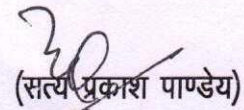 (सत्य प्रकाश पाण्डेय)